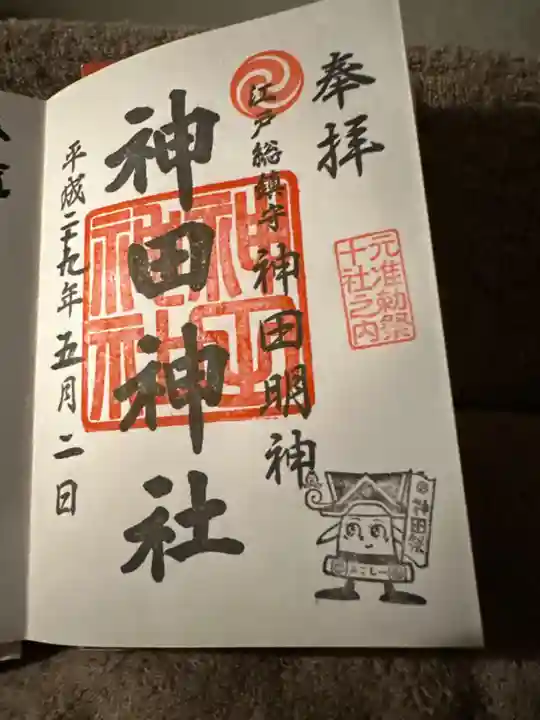 奉拝
元准勅祭
十社之内
江戸総鎮守 神田明神
神田神社
平成二十九年五月二日
神田祭
みこしー
神田
神社